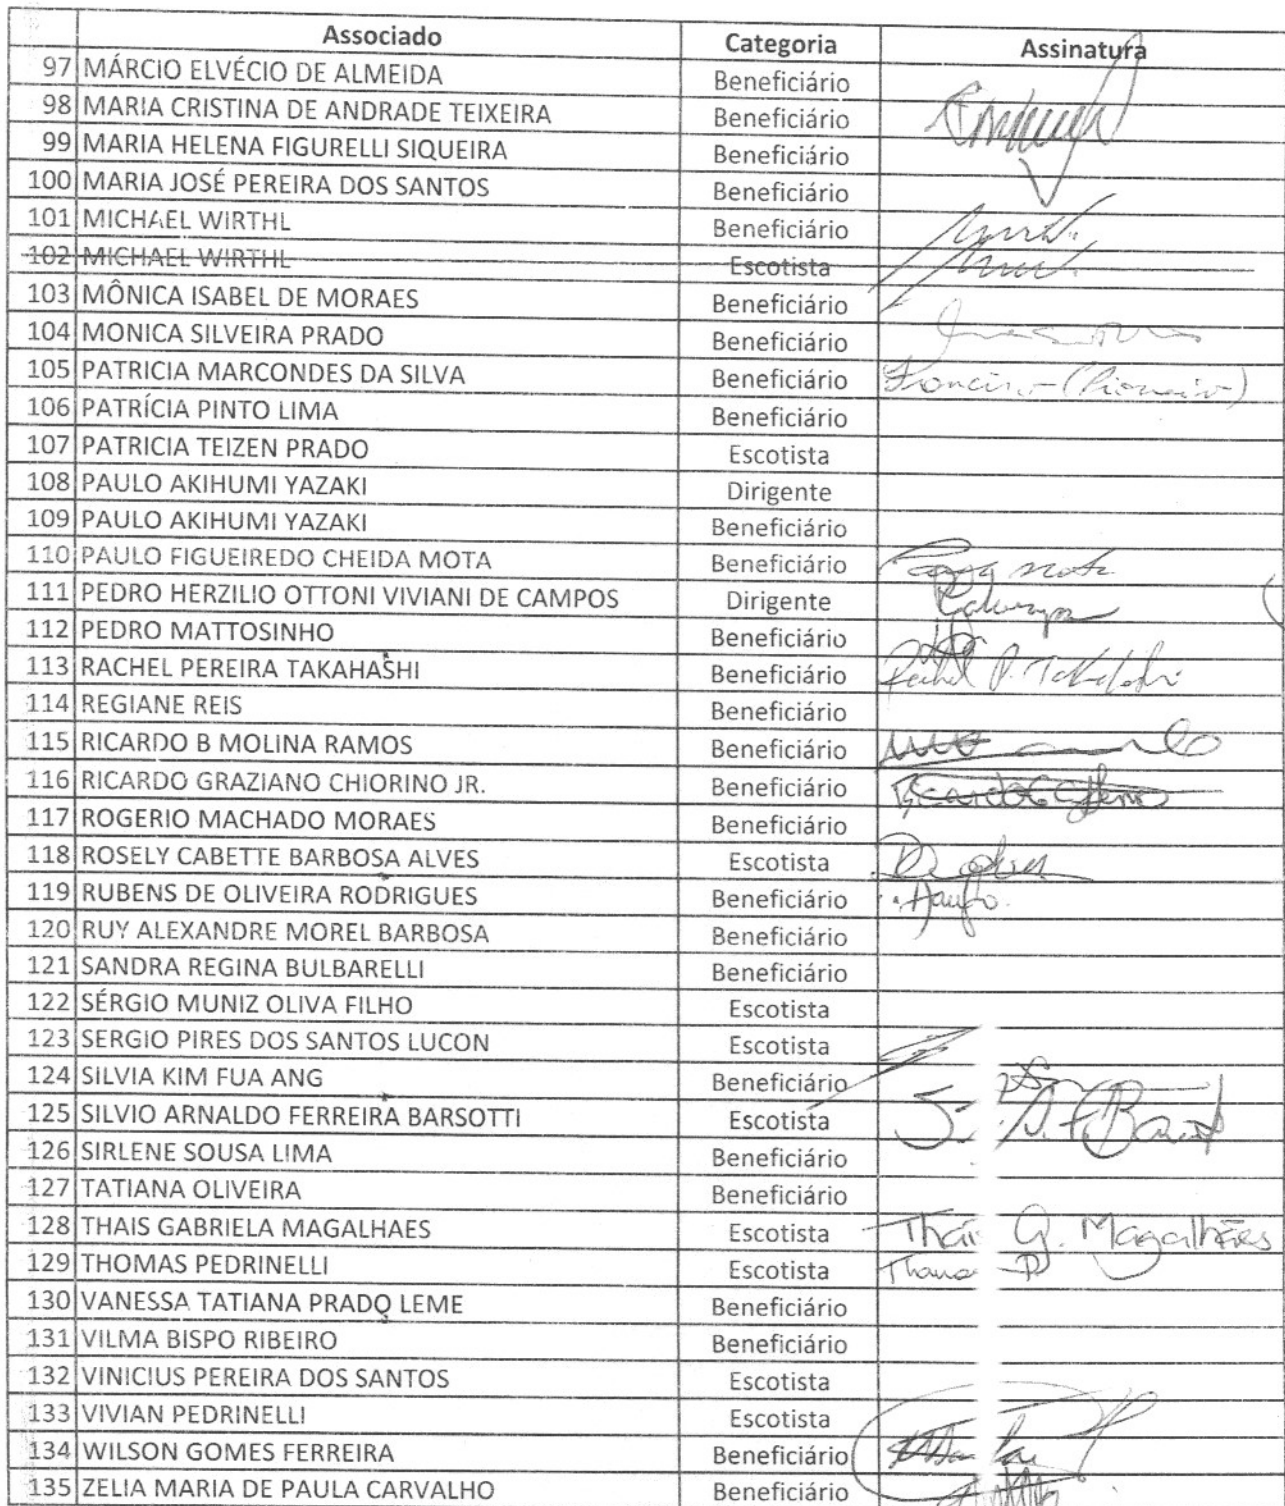 Associado Categoria Assinatura
97 MÁRCIO ELVÉCIO DE ALMEIDA Beneficiário
98 MARIA CRISTINA DE ANDRADE TEIXEIRA Beneficiário
99 MARIA HELENA FIGURELLI SIQUEIRA Beneficiário
100 MARIA JOSÉ PEREIRA DOS SANTOS Beneficiário
101 MICHAEL WIRTHL Beneficiário
102 MICHAEL WIRTHL Escotista
103 MÔNICA ISABEL DE MORAES Beneficiário
104 MONICA SILVEIRA PRADO Beneficiário
105 PATRICIA MARCONDES DA SILVA Beneficiário (Pioneiro)
106 PATRÍCIA PINTO LIMA Beneficiário
107 PATRICIA TEIZEN PRADO Escotista
108 PAULO AKIHUMI YAZAKI Dirigente
109 PAULO AKIHUMI YAZAKI Beneficiário
110 PAULO FIGUEIREDO CHEIDA MOTA Beneficiário
111 PEDRO HERZILIO OTTONI VIVIANI DE CAMPOS Dirigente
112 PEDRO MATTOSINHO Beneficiário
113 RACHEL PEREIRA TAKAHASHI Beneficiário Rachel P. Takahashi
114 REGIANE REIS Beneficiário
115 RICARDO B MOLINA RAMOS Beneficiário
116 RICARDO GRAZIANO CHIORINO JR. Beneficiário
117 ROGERIO MACHADO MORAES Beneficiário
118 ROSELY CABETTE BARBOSA ALVES Escotista
119 RUBENS DE OLIVEIRA RODRIGUES Beneficiário
120 RUY ALEXANDRE MOREL BARBOSA Beneficiário
121 SANDRA REGINA BULBARELLI Beneficiário
122 SÉRGIO MUNIZ OLIVA FILHO Escotista
123 SERGIO PIRES DOS SANTOS LUCON Escotista
124 SILVIA KIM FUA ANG Beneficiário
125 SILVIO ARNALDO FERREIRA BARSOTTI Escotista
126 SIRLENE SOUSA LIMA Beneficiário
127 TATIANA OLIVEIRA Beneficiário
128 THAIS GABRIELA MAGALHAES Escotista Thai G. Magalhães
129 THOMAS PEDRINELLI Escotista Thoma P
130 VANESSA TATIANA PRADO LEME Beneficiário
131 VILMA BISPO RIBEIRO Beneficiário
132 VINICIUS PEREIRA DOS SANTOS Escotista
133 VIVIAN PEDRINELLI Escotista
134 WILSON GOMES FERREIRA Beneficiário
135 ZELIA MARIA DE PAULA CARVALHO Beneficiário